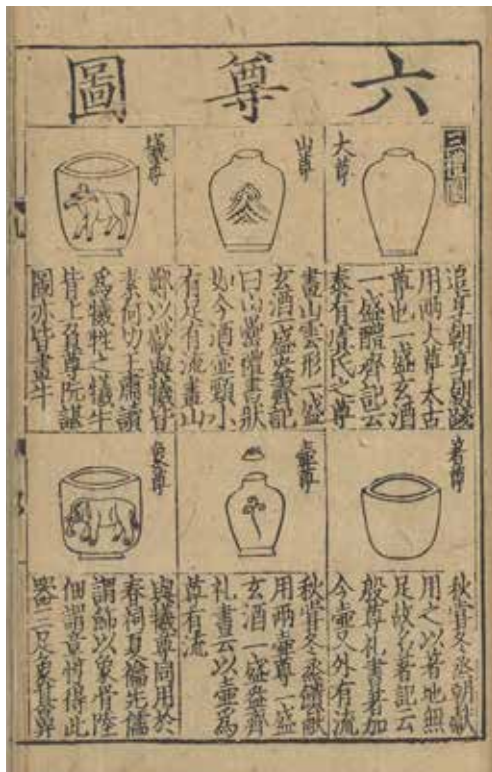 六尊圖
三禮圖
大尊
追享朝享朝踐
用兩大尊太古
尊也一盛玄酒
一盛醴齊記云
泰有虞氏之尊
山尊
畫山雲形一盛
玄酒一盛盎齊記
曰山罍禮書狀
如今酒壺頸小
有足有流畫山
犧尊
鄭以獻與犧皆
素何切王肅讀
為犧牲之犧牛
背上負尊阮諶
圖亦皆畫牛
著尊
秋嘗冬烝朝獻
用之以著地無
足故名著記云
殷尊礼書著加
今壺又外有流
壺尊
秋嘗冬烝饋獻
用兩壺尊一盛
玄酒一盛盎齊
礼書云以壺為
尊有流
象尊
與犧尊同用於
春祠夏禴先儒
謂飾以象骨陸
佃謂章惇得此
器三足象其鼻